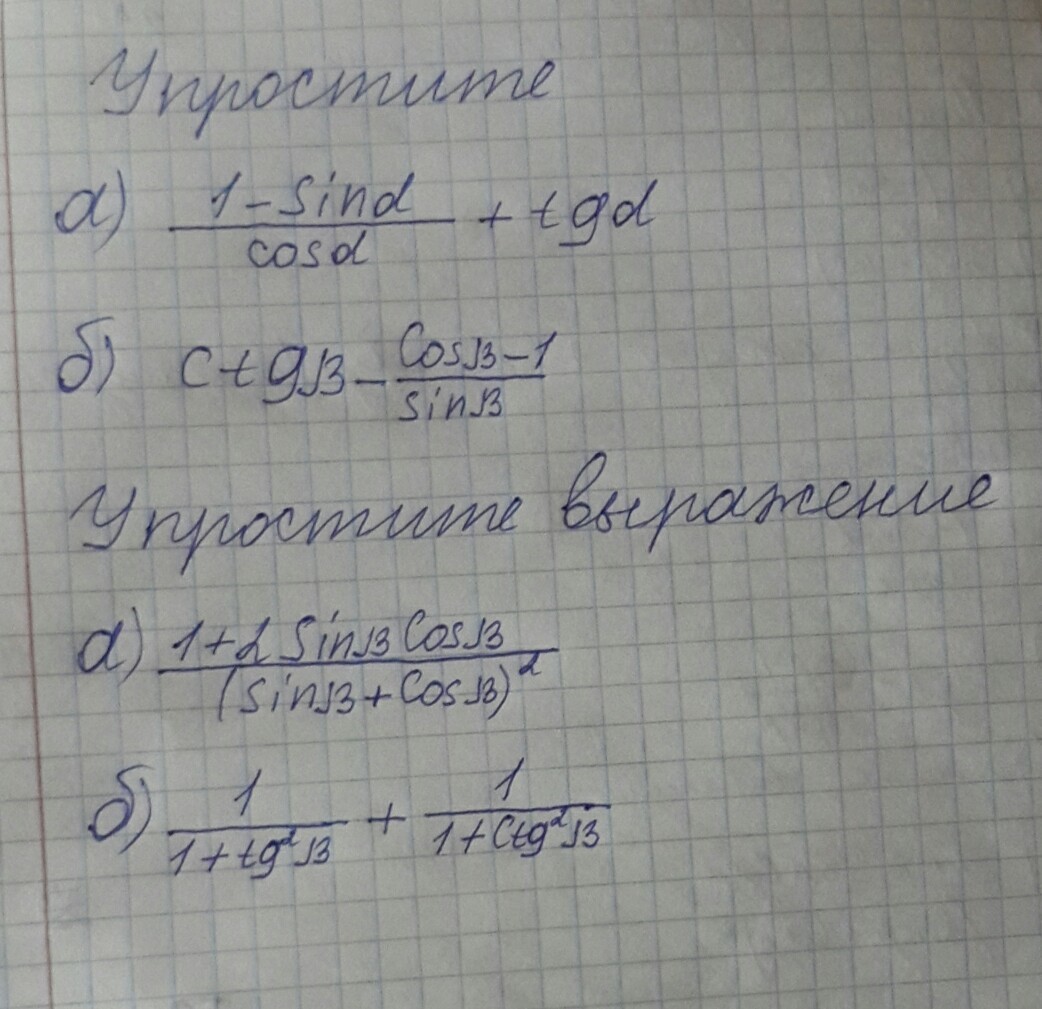 Упростите
а) (1-sinα)/cosα + tgα
б) ctgβ - (cosβ-1)/sinβ
Упростите выражение
а) (1+2 sinβ cosβ)/(sinβ+cosβ)²
б) 1/(1+tg²β) + 1/(1+ctg²β)